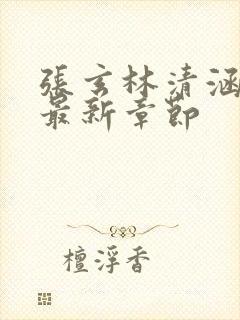 張玄林清涵
最新章節
檀浮香